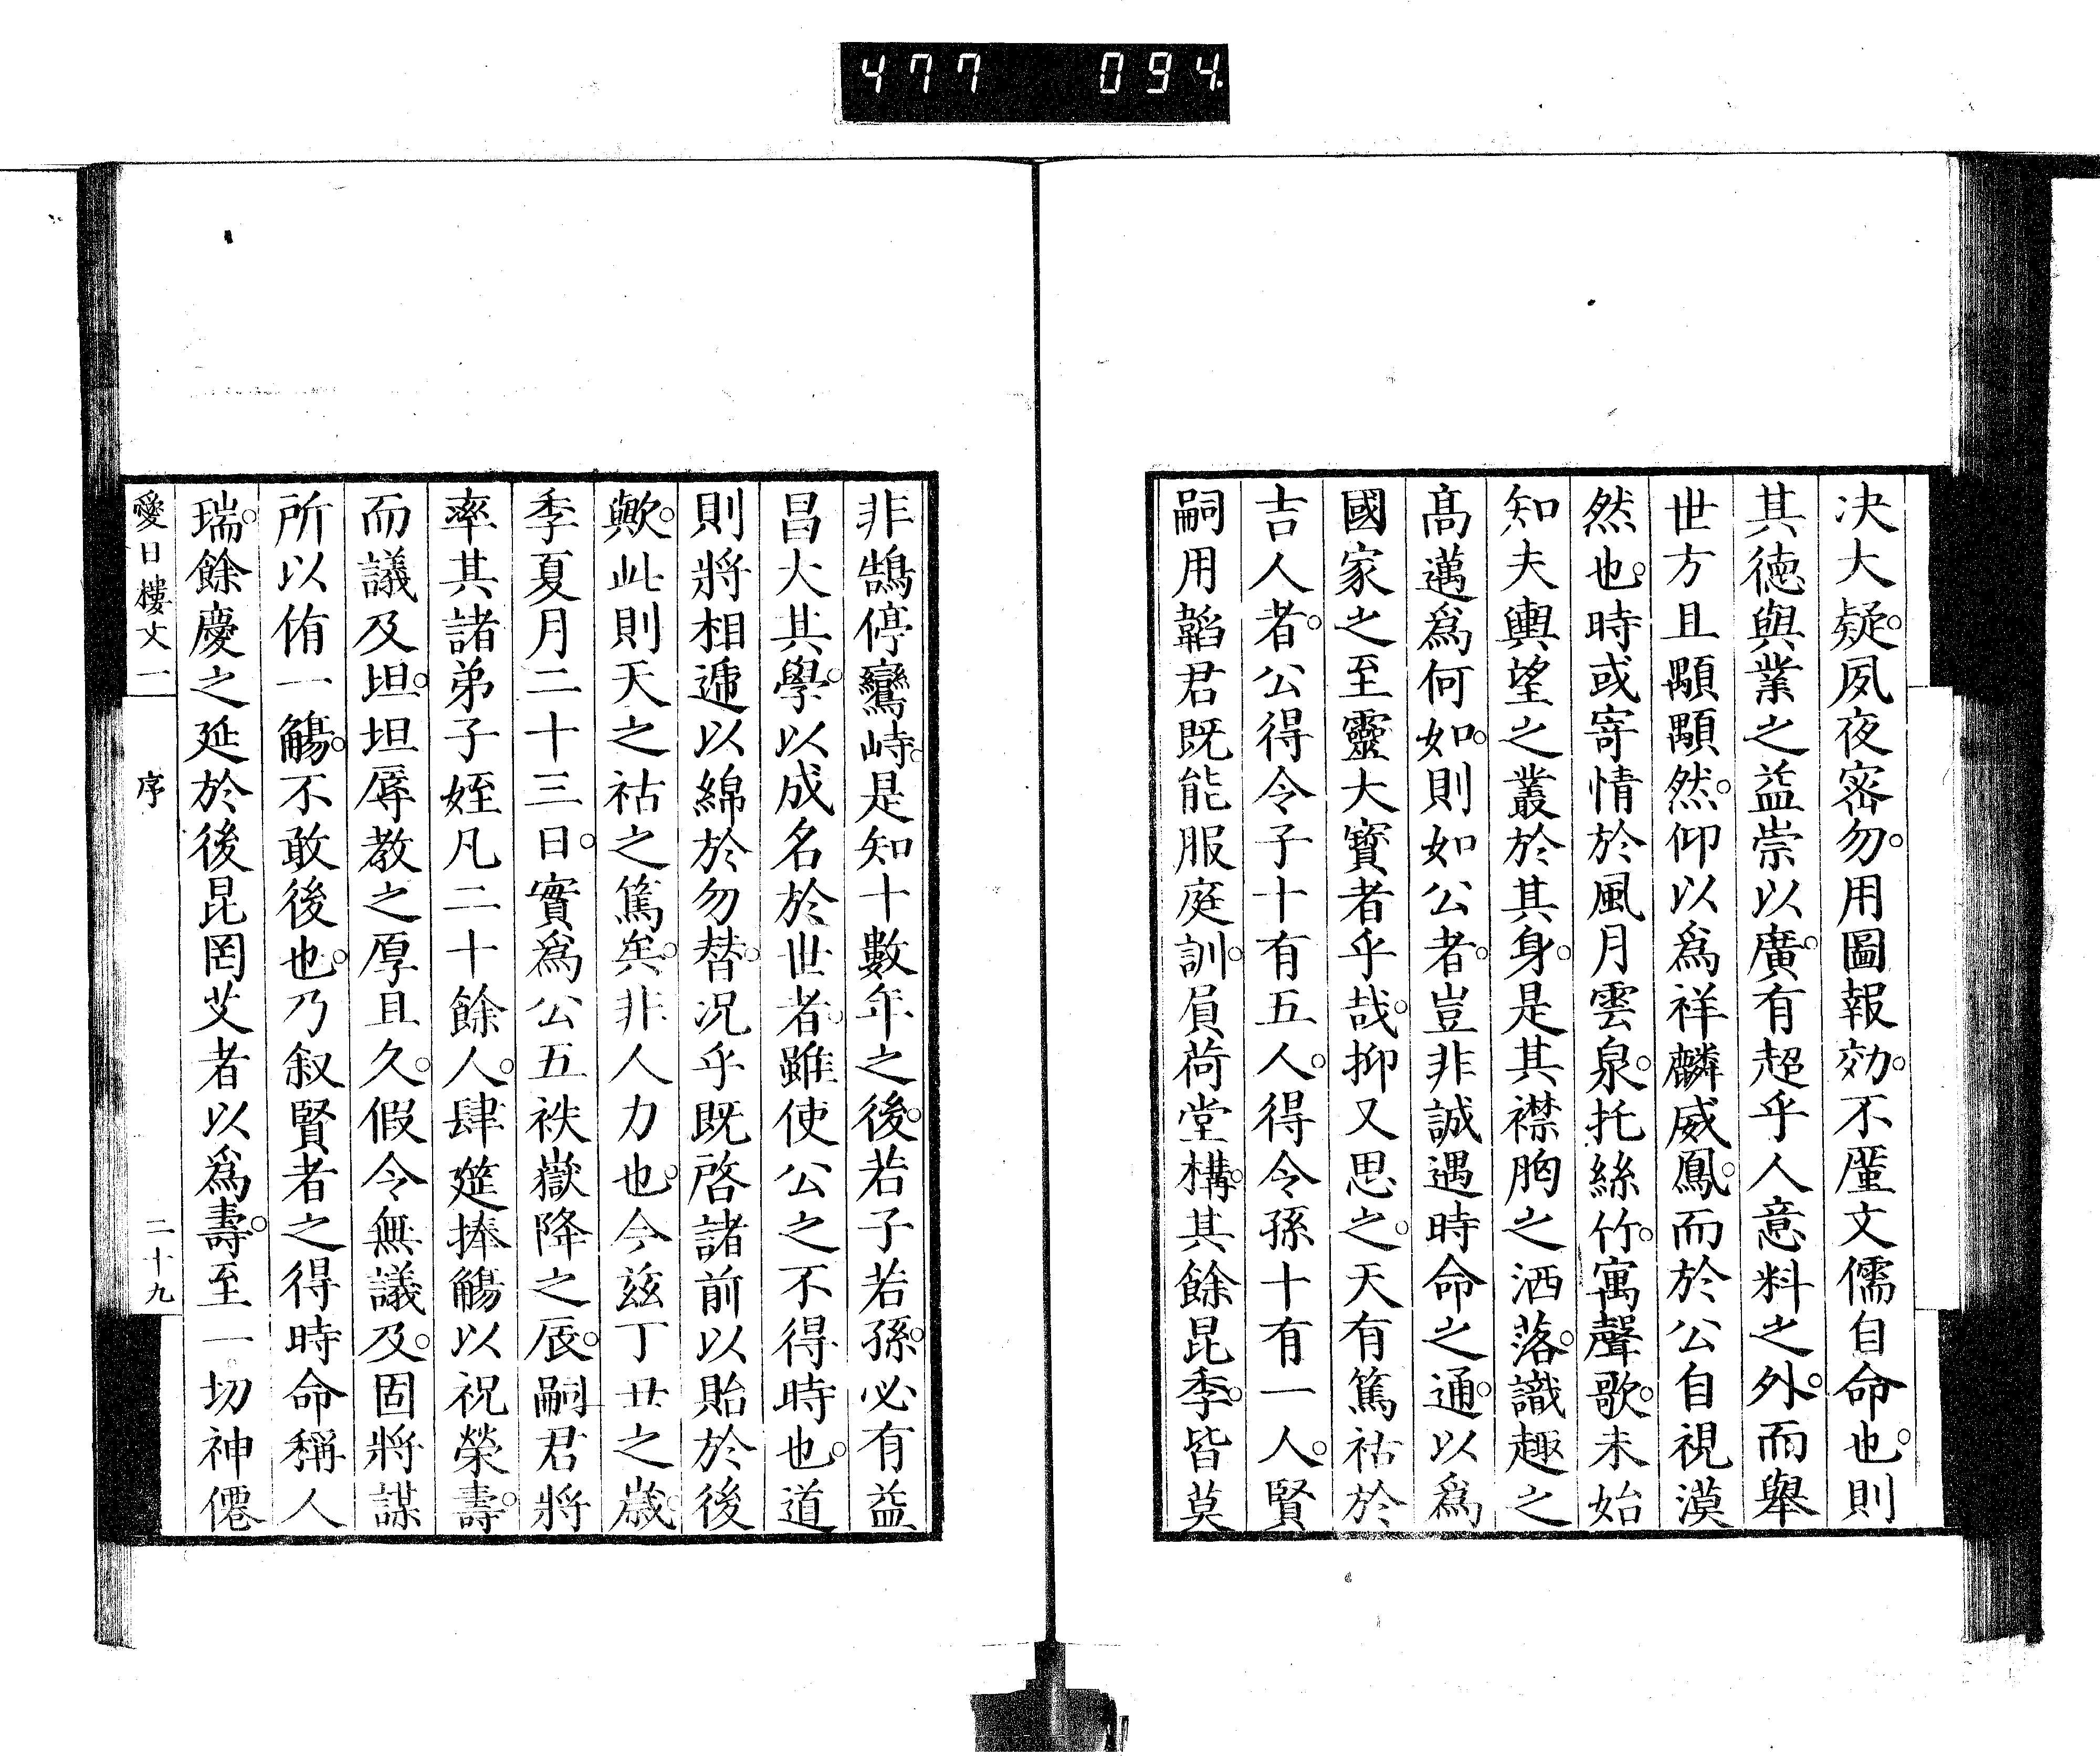 477 094.
决大疑。夙夜密勿。用圖報効。不廑文儒自命也。則
其徳與業之益崇以廣。有超乎人意料之外。而舉
世方且顒顒然。仰以爲祥麟威鳳。而於公自視漠
然也。時或寄情於風月雲泉。托絲竹。寓聲歌。未始
知夫輿望之叢於其身。是其襟胸之洒落。識趣之
髙邁爲何如。則如公者。豈非誠遇時命之通。以爲
國家之至靈大寳者乎哉。抑又思之。天有篤祜於
吉人者。公得令子十有五人。得令孫十有一人。賢
嗣用韜君既能服庭訓。肩荷堂構。其餘昆季。皆莫
非鵠停鸞峙。是知十數年之後。若子若孫。必有益
昌大其學。以成名於世者。雖使公之不得時也。道
則將相遞以綿於勿替。况乎既啓諸前以貽於後
歟。此則天之祜之篤矣。非人力也。今兹丁丑之歳。
季夏月二十三日。實爲公五袟嶽降之辰。嗣君將
率其諸弟子姪凡二十餘人。肆筵捧觴以祝榮壽。
而議及坦。坦辱教之厚且久。假令無議及。固將謀
所以侑一觴。不敢後也。乃叙賢者之得時命稱人
瑞。餘慶之延於後昆罔艾者以爲壽。至一切神僊
愛日樓文一 序 二十九